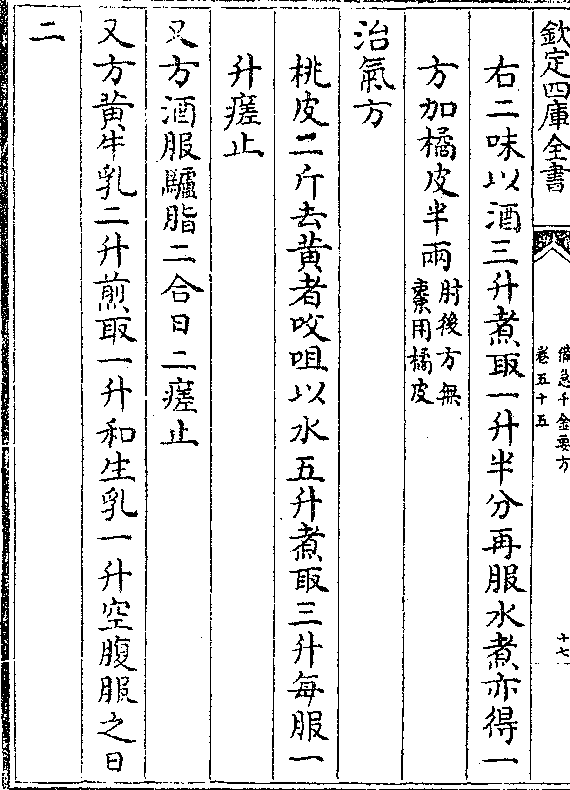 欽定四庫全書
備急千金要方
卷五十五
十七
右二味以酒三升煮取一升半分再服水煮亦得一
方加橘皮半兩肘後方無棗用橘皮
治氣方
桃皮二斤去黃者㕮咀以水五升煮取三升每服一
升瘥止
又方酒服驢脂二合日二瘥止
又方黃牛乳二升煎取一升和生乳一升空腹服之日
二